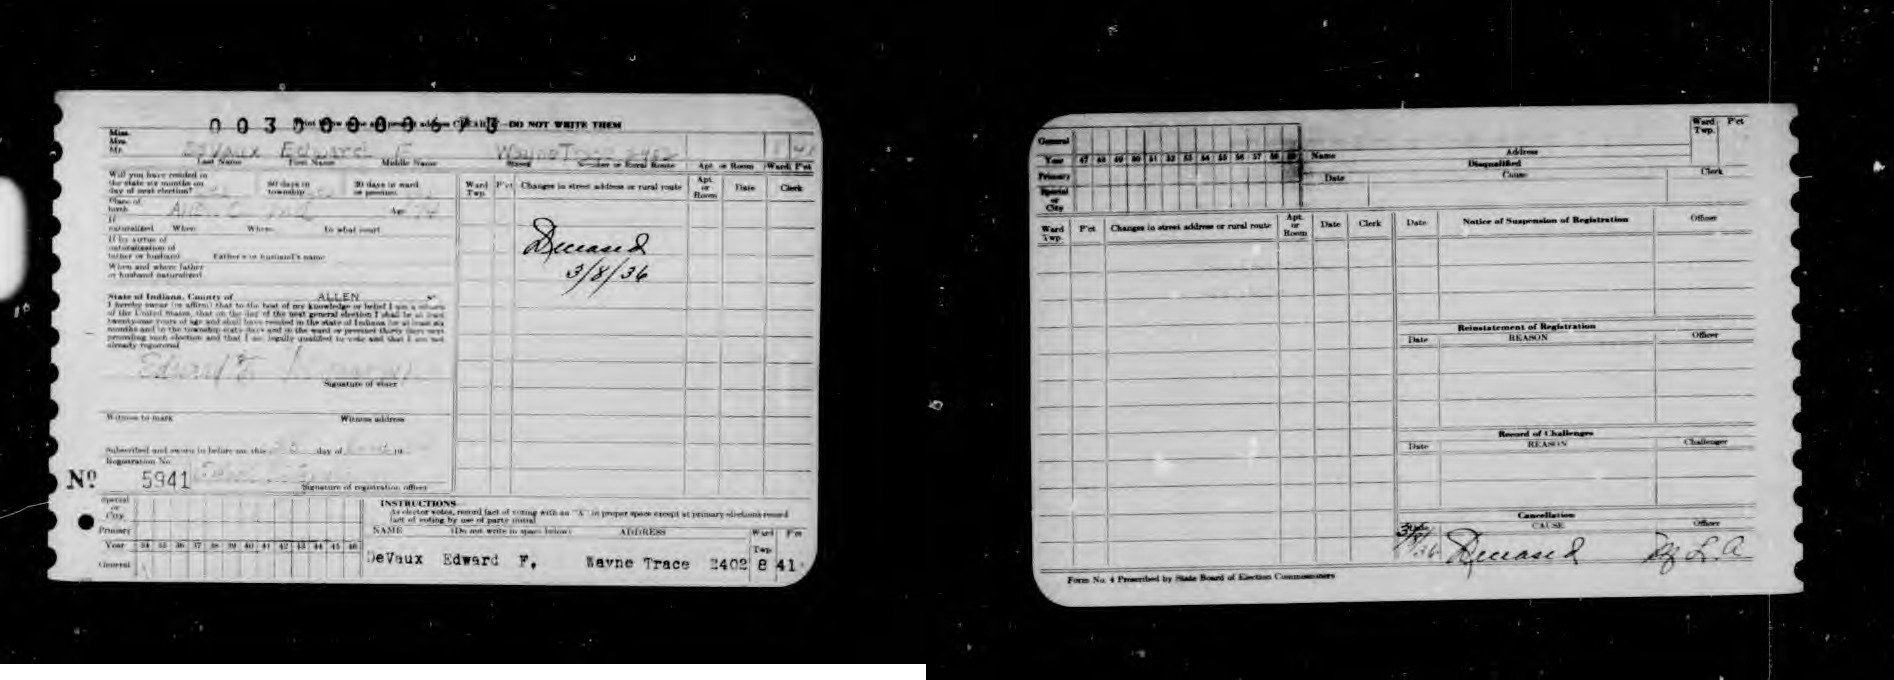 DO NOT WRITE THEM
Miss.
Mrs.
Mr. DeVaux Edward F Wayne Trace 2402 8 41
Last Name First Name Middle Name Street Number or Rural Route Apt. or Room Ward P'ct
Will you have resided in
the state six months on 60 days in 30 days in ward
day of next election? township or precinct
Place of
birth Allen C Ind Age 74
If
naturalized When Where In what court
If by virtue of
naturalization of
father or husband Father's or husband's name
When and where father
or husband naturalized
State of Indiana, County of ALLEN
I hereby swear (or affirm) that to the best of my knowledge or belief I am a citizen
of the United States, that on the day of the next general election I shall be at least
twenty-one years of age and shall have resided in the state of Indiana for at least six
months and in the township sixty days and in the ward or precinct thirty days next
preceding such election and that I am legally qualified to vote and that I am not
already registered
Edward F
Signature of voter
Witness to mark Witness address
Subscribed and sworn to before me, this day of 19
Registration No.
Nº 5941
Signature of registration officer
Ward Twp. P'ct Changes in street address or rural route Apt. or Room Date Clerk
Deceased
3/8/36
Special
or
City
Primary
Year 34 35 36 37 38 39 40 41 42 43 44 45 46
General
INSTRUCTIONS
As elector votes, record fact of voting with an "X" in proper space except at primary elections record
fact of voting by use of party initial
NAME (Do not write in space below) ADDRESS Ward Twp. P'ct
DeVaux Edward F. Wayne Trace 2402 8 41
General
Year 47 48 49 50 51 52 53 54 55 56 57 58 59
Primary
Special
or
City
Name Address Ward Twp. P'ct
Disqualified
Date Cause Clerk
Ward Twp. P'ct Changes in street address or rural route Apt. or Room Date Clerk
Date Notice of Suspension of Registration Officer
Reinstatement of Registration
Date REASON Officer
Record of Challenges
Date REASON Challenger
Cancellation
Date CAUSE Officer
3/8/36 Deceased M L A
Form No. 4 Prescribed by State Board of Election Commissioners